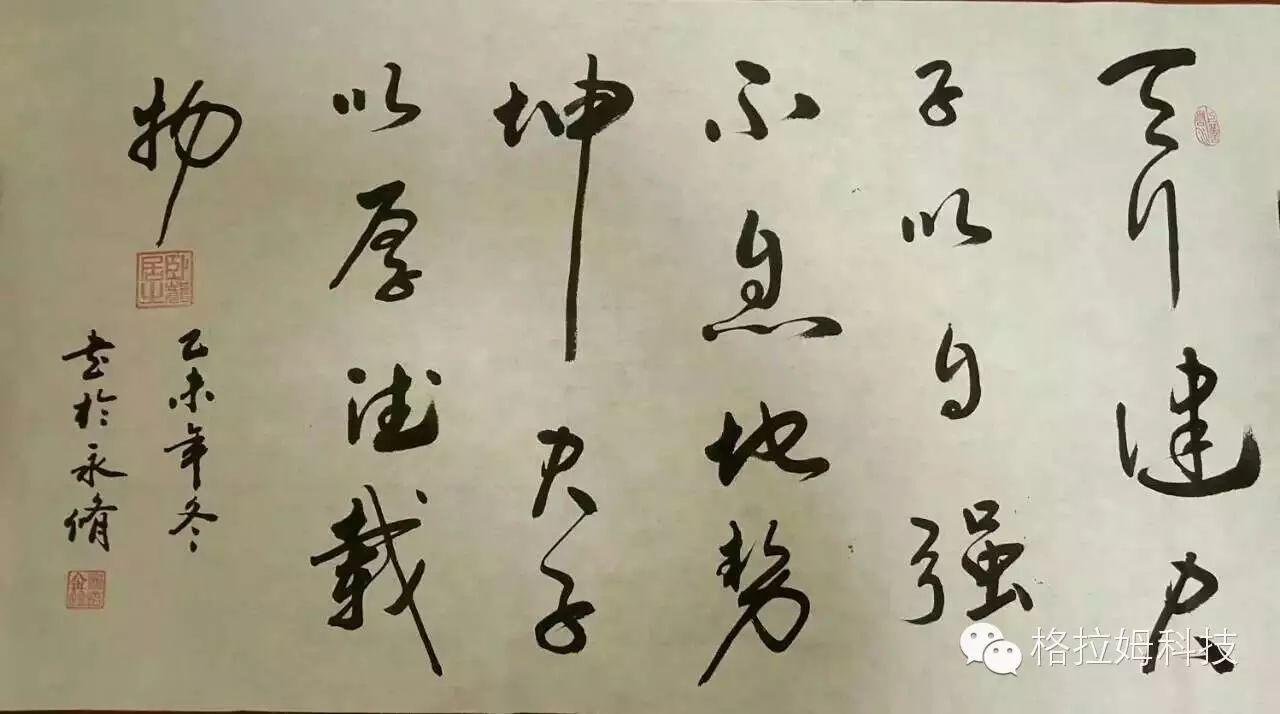 天行健君
子以自强
不息地势
坤君子
以厚德载
物
乙未年冬
书于永脩
格拉姆科技